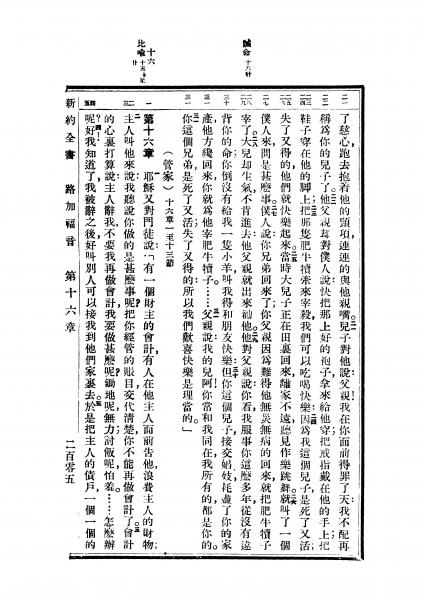 誡命十八卄
十六
比喩十五3記廿
二一
二二
二三
二四
二五
二九
三十
三一
三二
一
二
三
四
了慈心跑去抱着他的頸項連連的與他親嘴兒子對他說父親我在你面前得罪了天我不配再
稱爲你的兒子了他父親却對僕人說快把那上好的袍子拿來給他穿把戒指戴在他的手上把
鞋子穿在他的脚上把那隻肥牛犢牽來宰殺我們可以吃喝快樂因爲我這個兒子是死了又活
失了又得的他們就快樂起來當時大兒子正在田裏回來離家不遠聽見作樂跳舞就叫了一個
僕人來問是甚麼事僕人說你兄弟回來了你父親因爲難得他無災無病的回來就把肥牛犢子
宰了大兒却生氣不肯進去他父親就出來勸他他對父親說你看我服事你這麼多年從沒有違
背你的命你倒沒有給我一隻小羊叫我得和朋友快樂但你這個兒子接交娼妓耗盡了你的家
產他方纔回來你就爲他宰肥牛犢子……父親說我的兒阿!你常和我同在我所有的都是你的
你這個兄弟是死了又活失了又得的所以我們歡喜快樂是理當的。」
(管家)十六章一至十三節
第十六章 耶穌又對門徒說:「有一個財主的會計有人在他主人面前告他浪費主人的財物
主人叫他來說我聽說你做的是甚麼事呢把你經管的賬目交代清楚你不能再做會計了會計
的心裏打算說主人辭我不要我再做會計我要做甚麼呢鋤地呢無力討飯呢怕羞……怎麼辦
呢?好我知道了我被辭之後好叫別人可以接我到他們家裏去於是把主人的債戶一個一個的
新約全書 路加福音 第十六章 二百零五